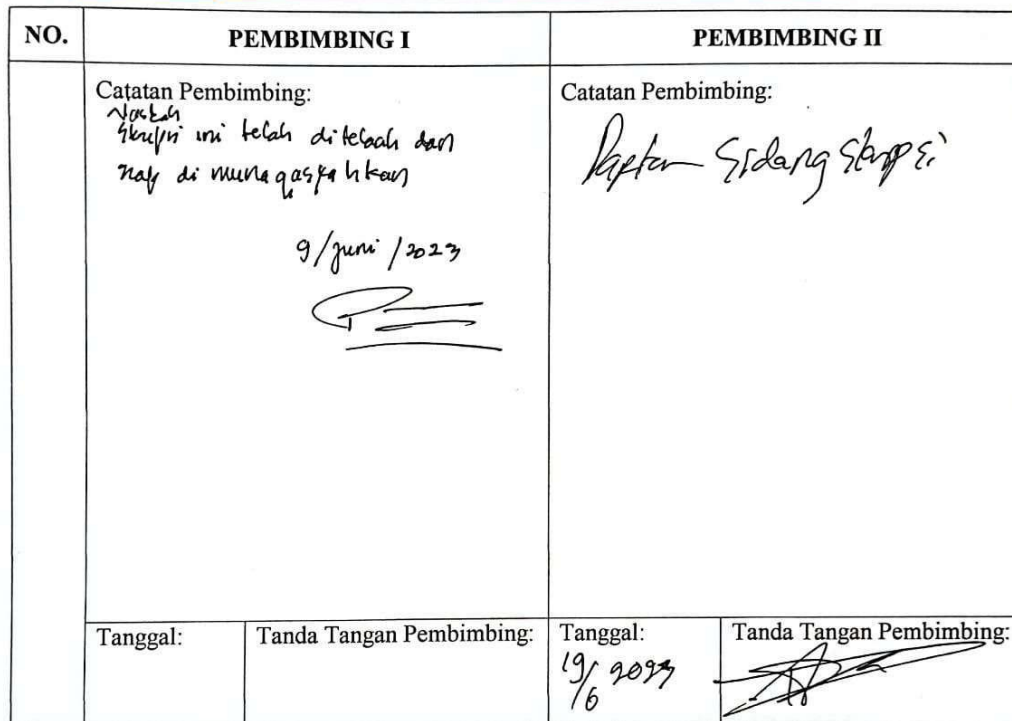 NO.
PEMBIMBING I
PEMBIMBING II
Catatan Pembimbing:
Naskah
Skripsi ini telah ditelaah dan
di munaqasyahkan
9/Juni/2023
Catatan Pembimbing:
Sidang Skripsi
Tanggal:
Tanda Tangan Pembimbing:
Tanggal:
19/6 2023
Tanda Tangan Pembimbing: